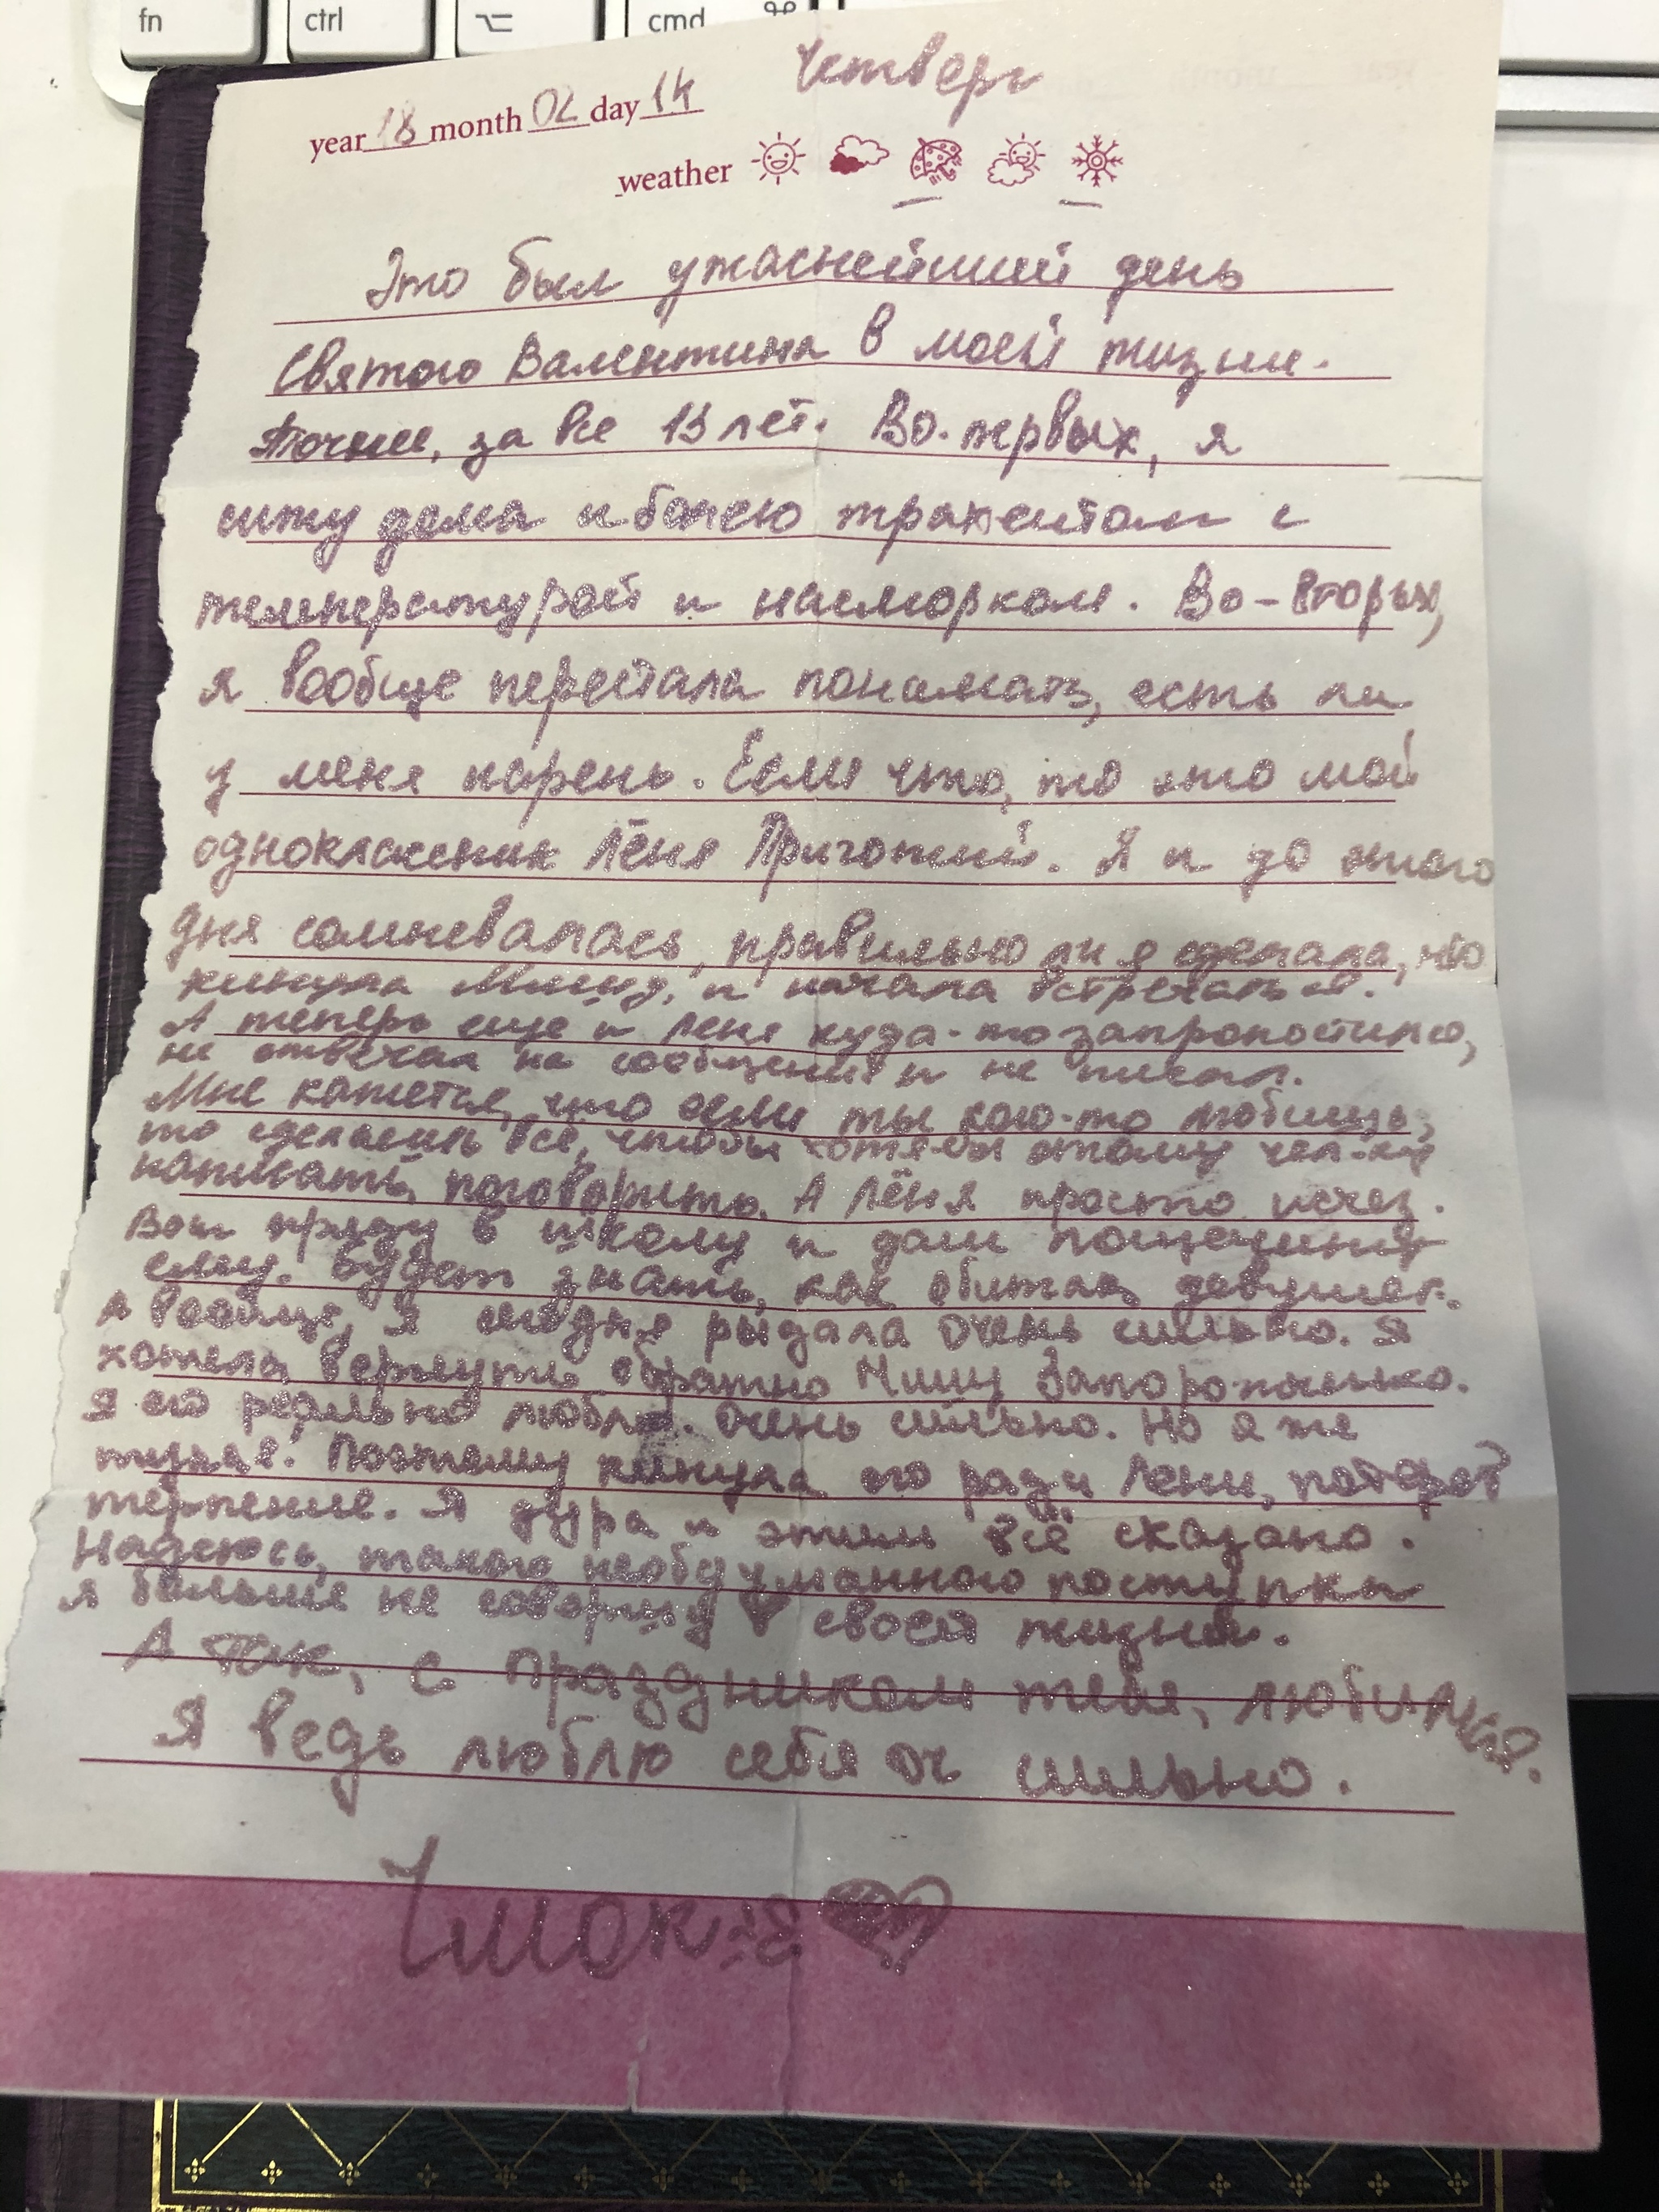 fn ctrl cmd
Четверг
year 18 month 02 day 14
weather
Это был ужаснейший день
Святого Валентина в моей жизни.
Точнее, за все 13 лет. Во-первых, я
сижу дома и болею трахеитом с
температурой и насморком. Во-вторых,
я вообще перестала понимать, есть ли
у меня парень. Если что, то это мой
одноклассник Лёня Пригожий. Я и до этого
дня сомневалась, правильно ли я сделала, что
кинула Мишу, и начала встречаться.
А теперь еще и Леня куда-то запропостился,
не отвечал на сообщения и не писал.
Мне кажется, что если ты кого-то любишь,
то сделаешь всё, чтобы хотя-бы этому чел-ку
написать, поговорить. А Лёня просто исчез.
Вот приду в школу и дам пощечину
ему. Будет знать, как обижать девушек.
А вообще, я сегодня рыдала очень сильно. Я
хотела вернуть обратно Мишу
я его реально люблю. Очень сильно. Но я же
Поэтому кинула его ради Лени,
терпение. Я дура и этим всё сказано.
Надеюсь, такого необдуманного поступка
я больше не совершу в своей жизни.
А так, с праздником тебя, любимая.
Я ведь люблю себя оч сильно.
Чмок